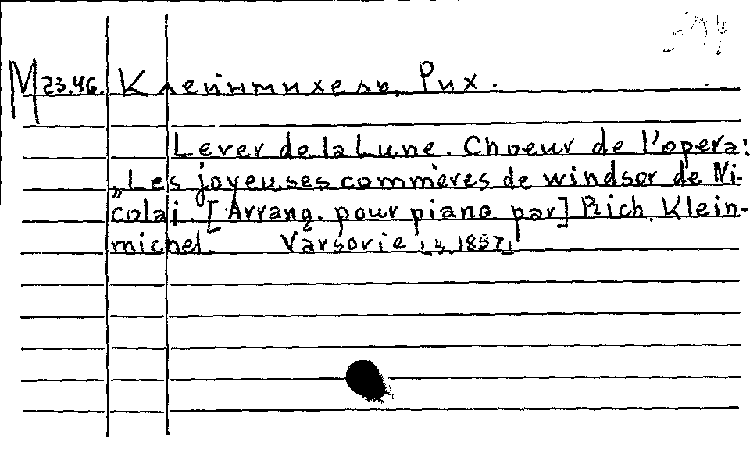 М 23.46. Клейнмихель, Рих.
Lever de la Lune. Choeur de l'opera:
„Les joyeuses commères de windsor de Ni-
colai. [Arrang. pour piano par] Rich. Klein-
michel Varsovie